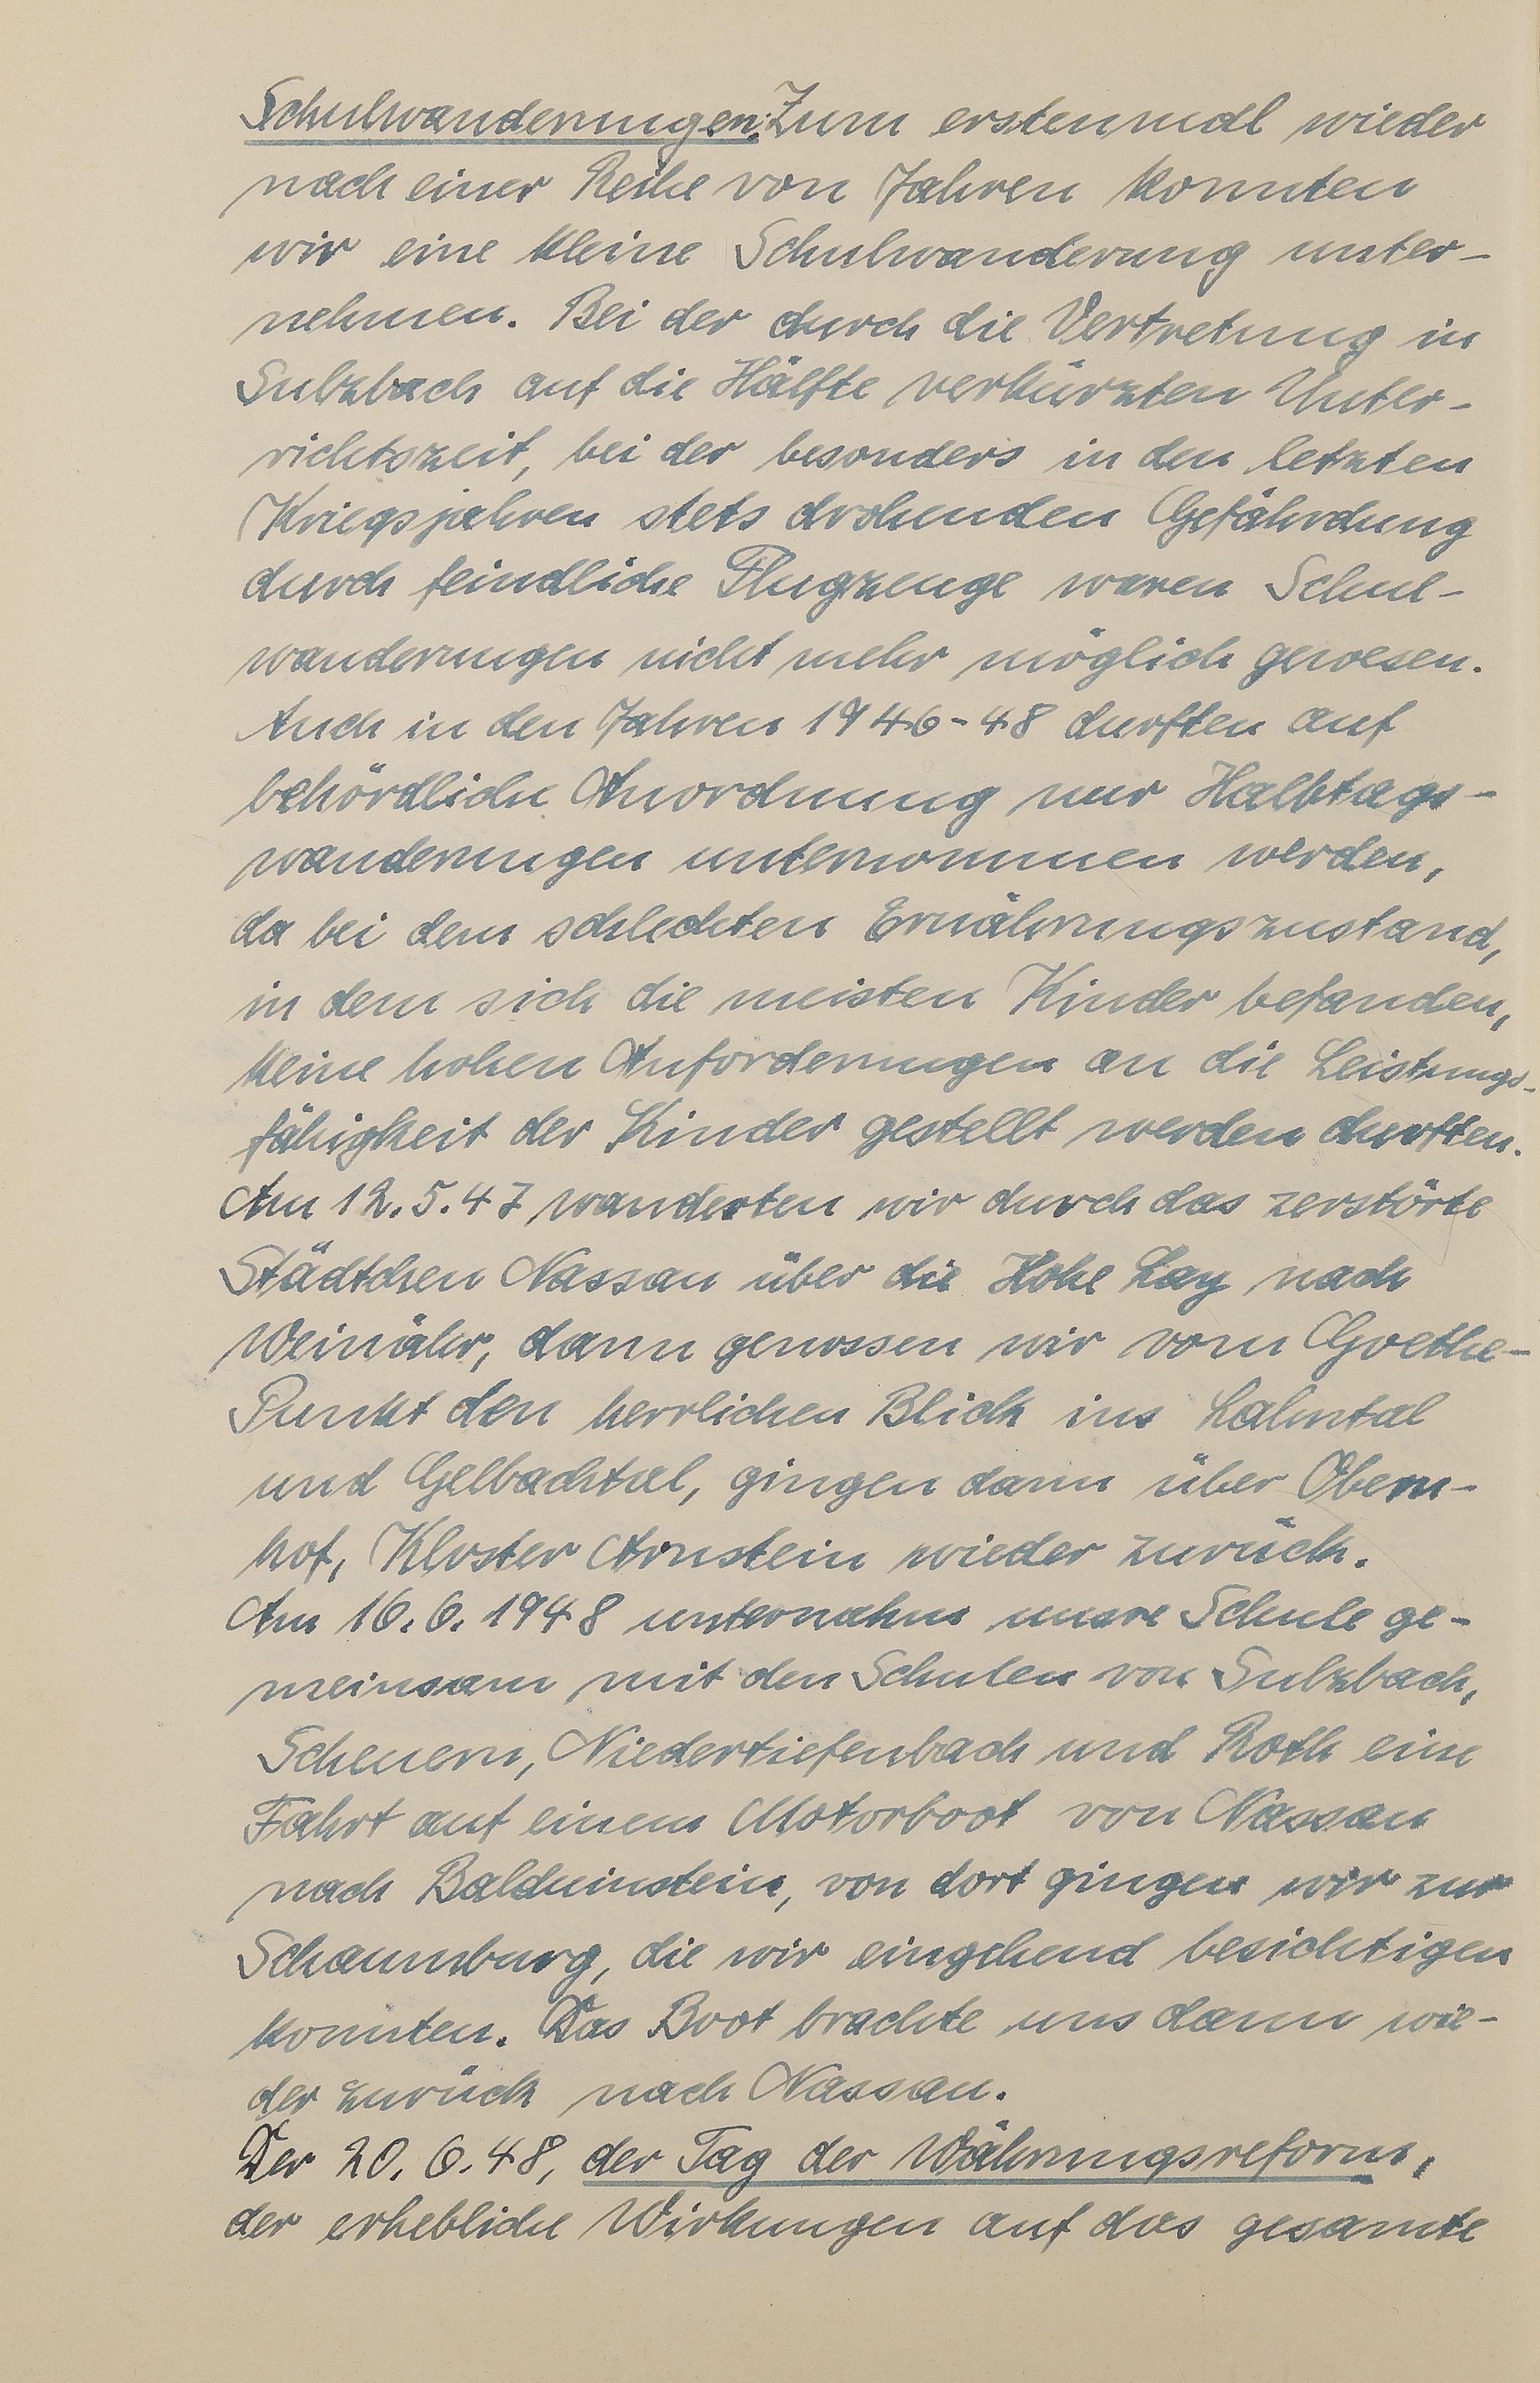 Schulwanderungen: Zum erstenmal wieder
nach einer Reihe von Jahren konnten
wir eine kleine Schulwanderung unter-
nehmen. Bei der durch die Vertretung in
Sulzbach auf die Hälfte verkürzten Unter-
richtszeit, bei der besonders in den letzten
Kriegsjahren stets drohenden Gefährdung
durch feindliche Flugzeuge waren Schul-
wanderungen nicht mehr möglich gewesen.
Auch in den Jahren 1946-48 durften auf
behördliche Anordnung nur Halbtags-
wanderungen unternommen werden,
da bei dem schlechten Ernährungszustand,
in dem sich die meisten Kinder befanden,
keine hohen Anforderungen an die Leistungs-
fähigkeit der Kinder gestellt werden durften.
Am 12.5.47 wanderten wir durch das zerstörte
Städtchen Nassau über die Hohe Lay nach
Weinähr, dann genossen wir vom Goethe-
Punkt den herrlichen Blick ins Lahntal
und Gelbachtal, gingen dann über Obern-
hof, Kloster Arnstein wieder zurück.
Am 16.6.1948 unternahm unsre Schule ge-
meinsam mit den Schulen von Sulzbach,
Scheuern, Niedertiefenbach und Roth eine
Fahrt auf einem Motorboot von Nassau
nach Balduinstein, von dort gingen wir zur
Schaumburg, die wir eingehend besichtigen
konnten. Das Boot brachte uns dann wie-
der zurück nach Nassau.
Der 20.6.48, der Tag der Währungsreform,
der erhebliche Wirkungen auf das gesamte